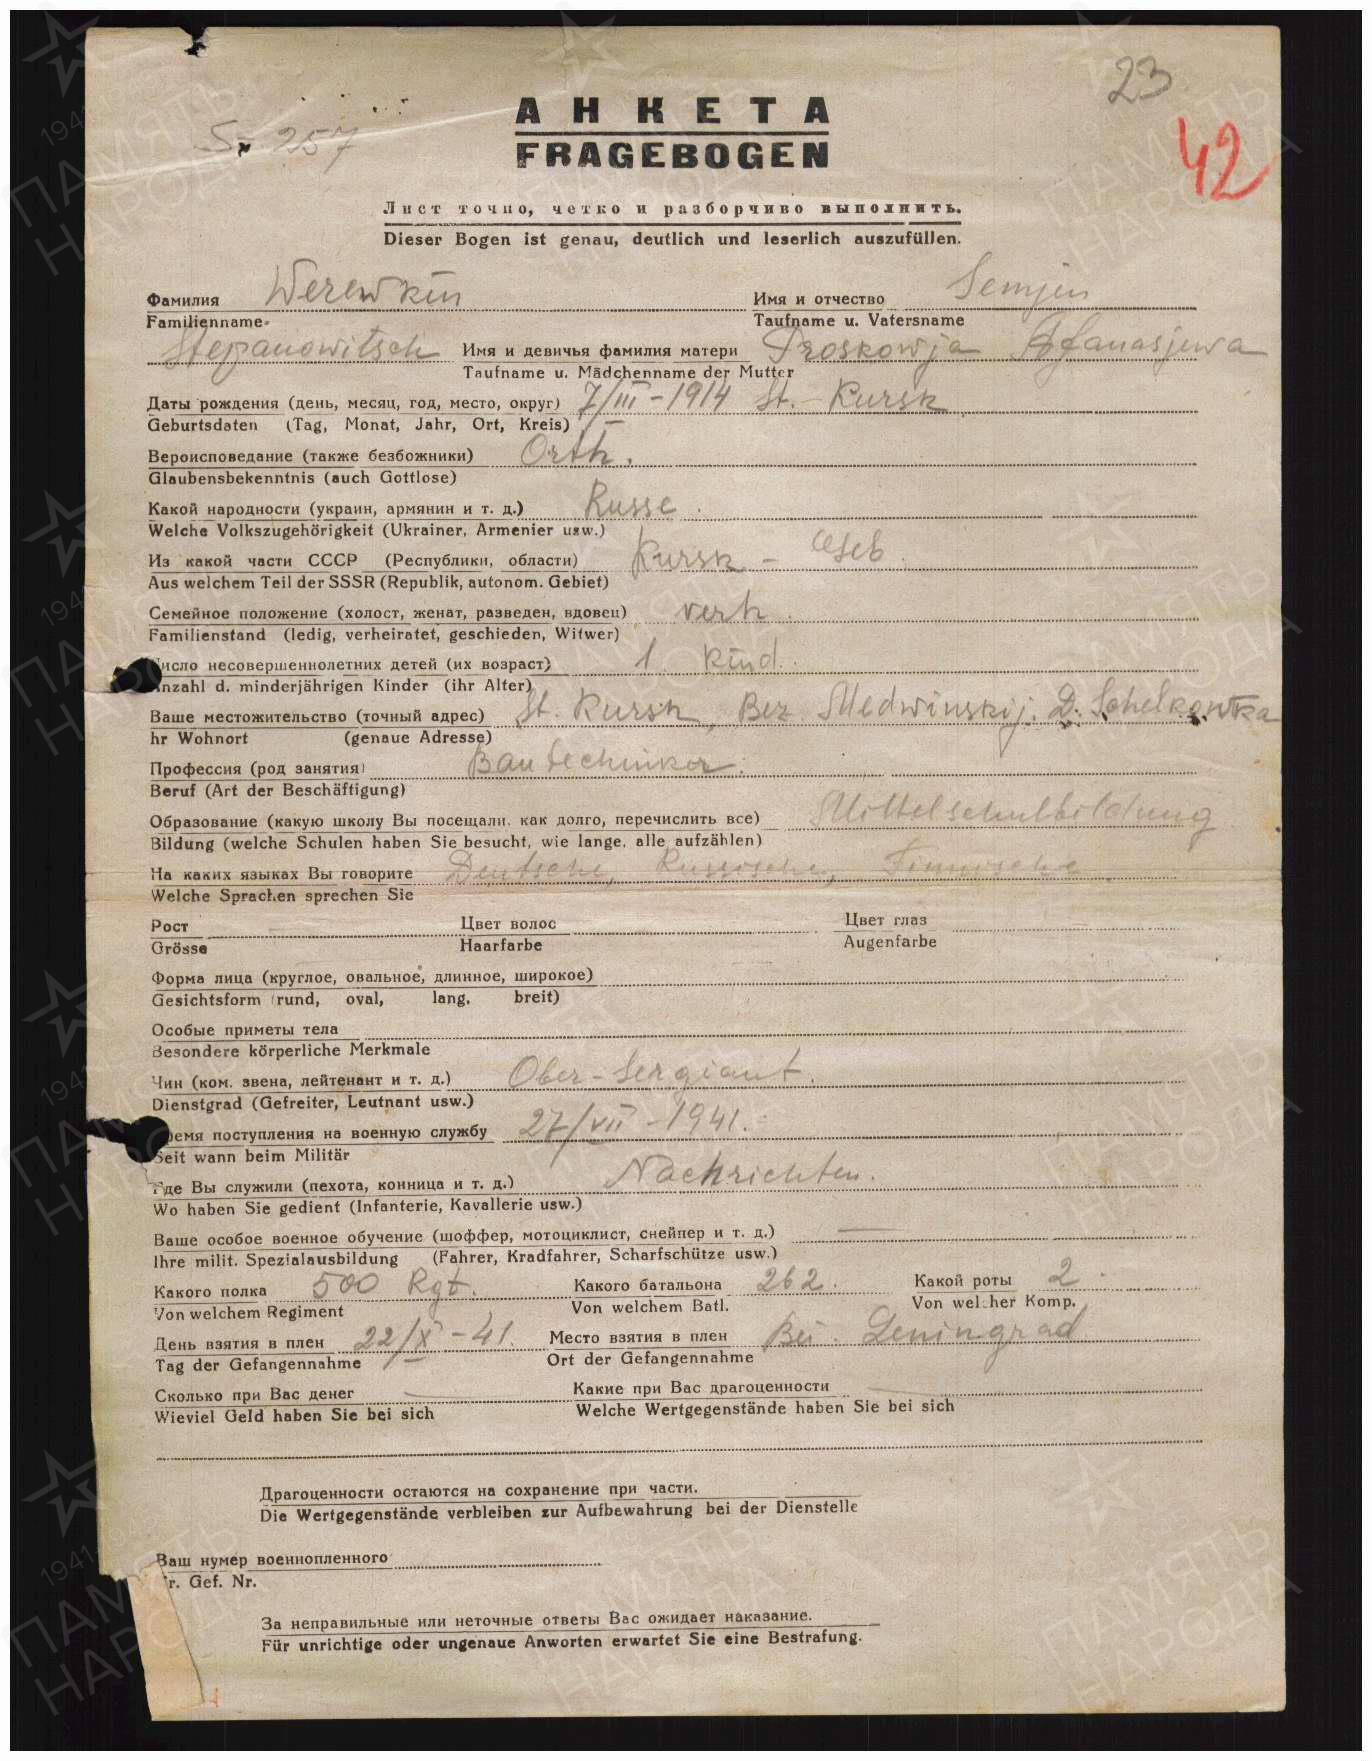 23
S- 257
АНКЕТА
FRAGEBOGEN
42
Лист точно, четко и разборчиво выполнить.
Dieser Bogen ist genau, deutlich und leserlich auszufüllen.
Фамилия Werewkin Имя и отчество Semjen
Familienname Taufname u. Vatersname
Stepanowitsch Имя и девичья фамилия матери Proskowja Afanasjewa
Taufname u. Mädchenname der Mutter
Даты рождения (день, месяц, год, место, округ) 7/III-1914 St. Kursk
Geburtsdaten (Tag, Monat, Jahr, Ort, Kreis)
Вероисповедание (также безбожники) Orth.
Glaubensbekenntnis (auch Gottlose)
Какой народности (украин, армянин и т. д.) Russe
Welche Volkszugehörigkeit (Ukrainer, Armenier usw.)
Из какой части СССР (Республики, области) Kursk - Geb.
Aus welchem Teil der SSSR (Republik, autonom. Gebiet)
Семейное положение (холост, женат, разведен, вдовец) verh.
Familienstand (ledig, verheiratet, geschieden, Witwer)
исло несовершеннолетних детей (их возраст) 1 Kind.
nzahl d. minderjährigen Kinder (ihr Alter)
Ваше местожительство (точный адрес) St. Kursk, Bez Medwinskij. D. Schelkowka
hr Wohnort (genaue Adresse)
Профессия (род занятия) Bautechniker.
Beruf (Art der Beschäftigung)
Образование (какую школу Вы посещали, как долго, перечислить все) Mittelschulbildung
Bildung (welche Schulen haben Sie besucht, wie lange, alle aufzählen)
На каких языках Вы говорите Deutsche, Russische, Finnische
Welche Sprachen sprechen Sie
Рост Цвет волос Цвет глаз
Grösse Haarfarbe Augenfarbe
Форма лица (круглое, овальное, длинное, широкое)
Gesichtsform (rund, oval, lang, breit)
Особые приметы тела
Besondere körperliche Merkmale
Чин (ком. звена, лейтенант и т. д.) Ober-Sergiant.
Dienstgrad (Gefreiter, Leutnant usw.)
ремя поступления на военную службу 27/VII-1941.
Seit wann beim Militär
Где Вы служили (пехота, конница и т. д.) Nachrichten.
Wo haben Sie gedient (Infanterie, Kavallerie usw.)
Ваше особое военное обучение (шоффер, мотоциклист, снейпер и т. д.) —
Ihre milit. Spezialausbildung (Fahrer, Kradfahrer, Scharfschütze usw.)
Какого полка 500 Rgt. Какого батальона 262. Какой роты 2
Von welchem Regiment Von welchem Batl. Von welcher Komp.
День взятия в плен 22/X-41. Место взятия в плен Bei. Leningrad
Tag der Gefangennahme Ort der Gefangennahme
Сколько при Вас денег — Какие при Вас драгоценности —
Wieviel Geld haben Sie bei sich Welche Wertgegenstände haben Sie bei sich
Драгоценности остаются на сохранение при части.
Die Wertgegenstände verbleiben zur Aufbewahrung bei der Dienstelle
Ваш нумер военнопленного
r. Gef. Nr.
За неправильные или неточные ответы Вас ожидает наказание.
Für unrichtige oder ungenaue Anworten erwartet Sie eine Bestrafung.